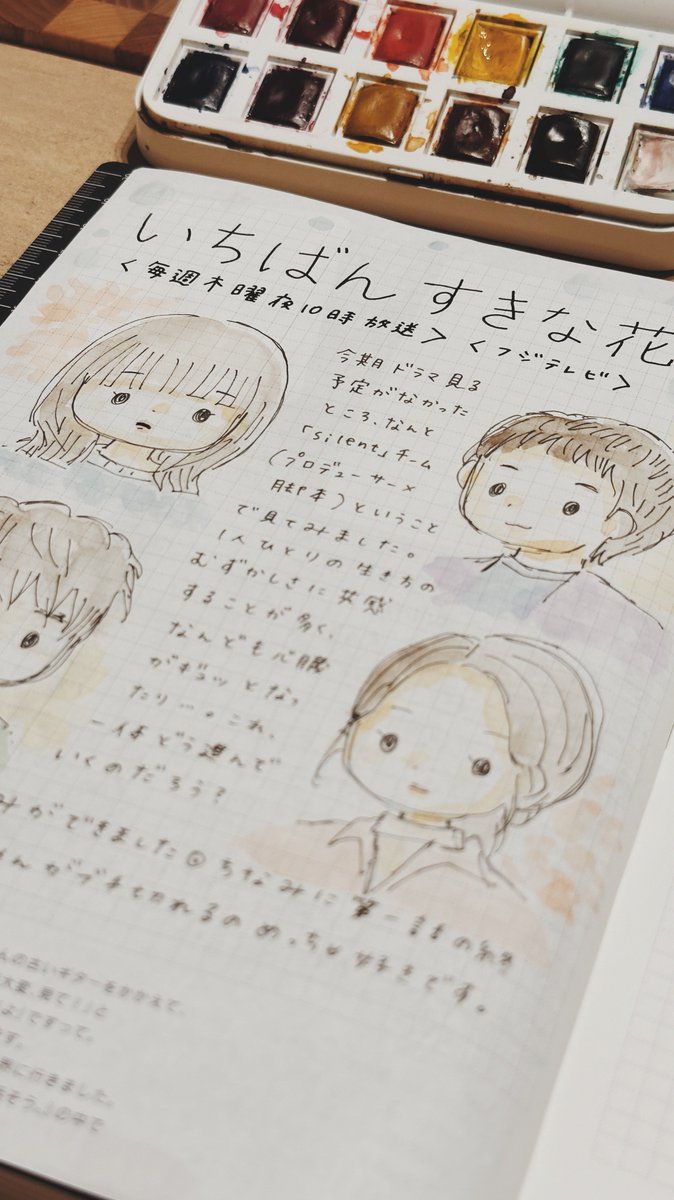 いちばんすきな花
＜毎週木曜夜10時放送＞＜フジテレビ＞
今期ドラマ見る
予定がなかった
ところ、なんと
「silent」チーム
(プロデューサー×
脚本)ということ
で見てみました。
1人ひとりの生き方の
むずかしさに共感
することが多く、
なんども心臓
がギュッとなっ
たり…。これ、
一体どう進んで
いくのだろう？
みができました☺ ちなみに第一話の
がブチ切れるのめっちゃ好きです。
んの古いギターをかかえて、
大変、寛て！」と
よ」ですって。
です。
に行きました。